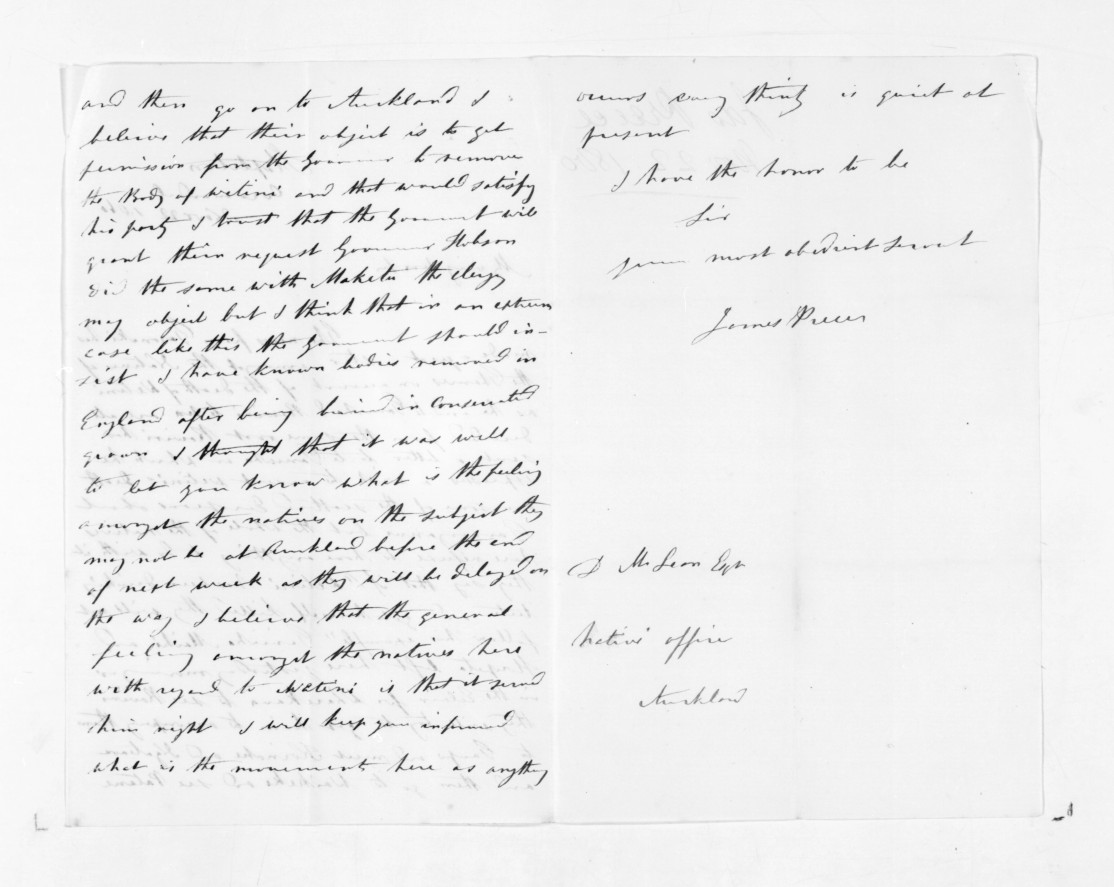 and then go on to Auckland I
believe that their object is to get
permission from the Governor to remove
the Body of Wetini and that would satisfy
his party I trust that the Goverment will
grant their request Governor Hobson
did the same with Maketu the clergy
may object but I think that in an extreem
case like this the Goverment should in-
sist I have known bodies removed in
England after being buried in consecrated
groun I thought that it was well
to let you know what is the feeling
amongst the natives on the subject they
may not be at Auckland before the end
of next week as they will be delayed on
the way I believe that the general
feeling amongst the natives here
with regard to Wetini is that it served
him right I will keep you informed
what is the movements here as anything
occurs every thing is quiet at
present
I have the honor to be
Sir
your most obedient servant
James Preece
D McLean Esqr
Native office
Auckland